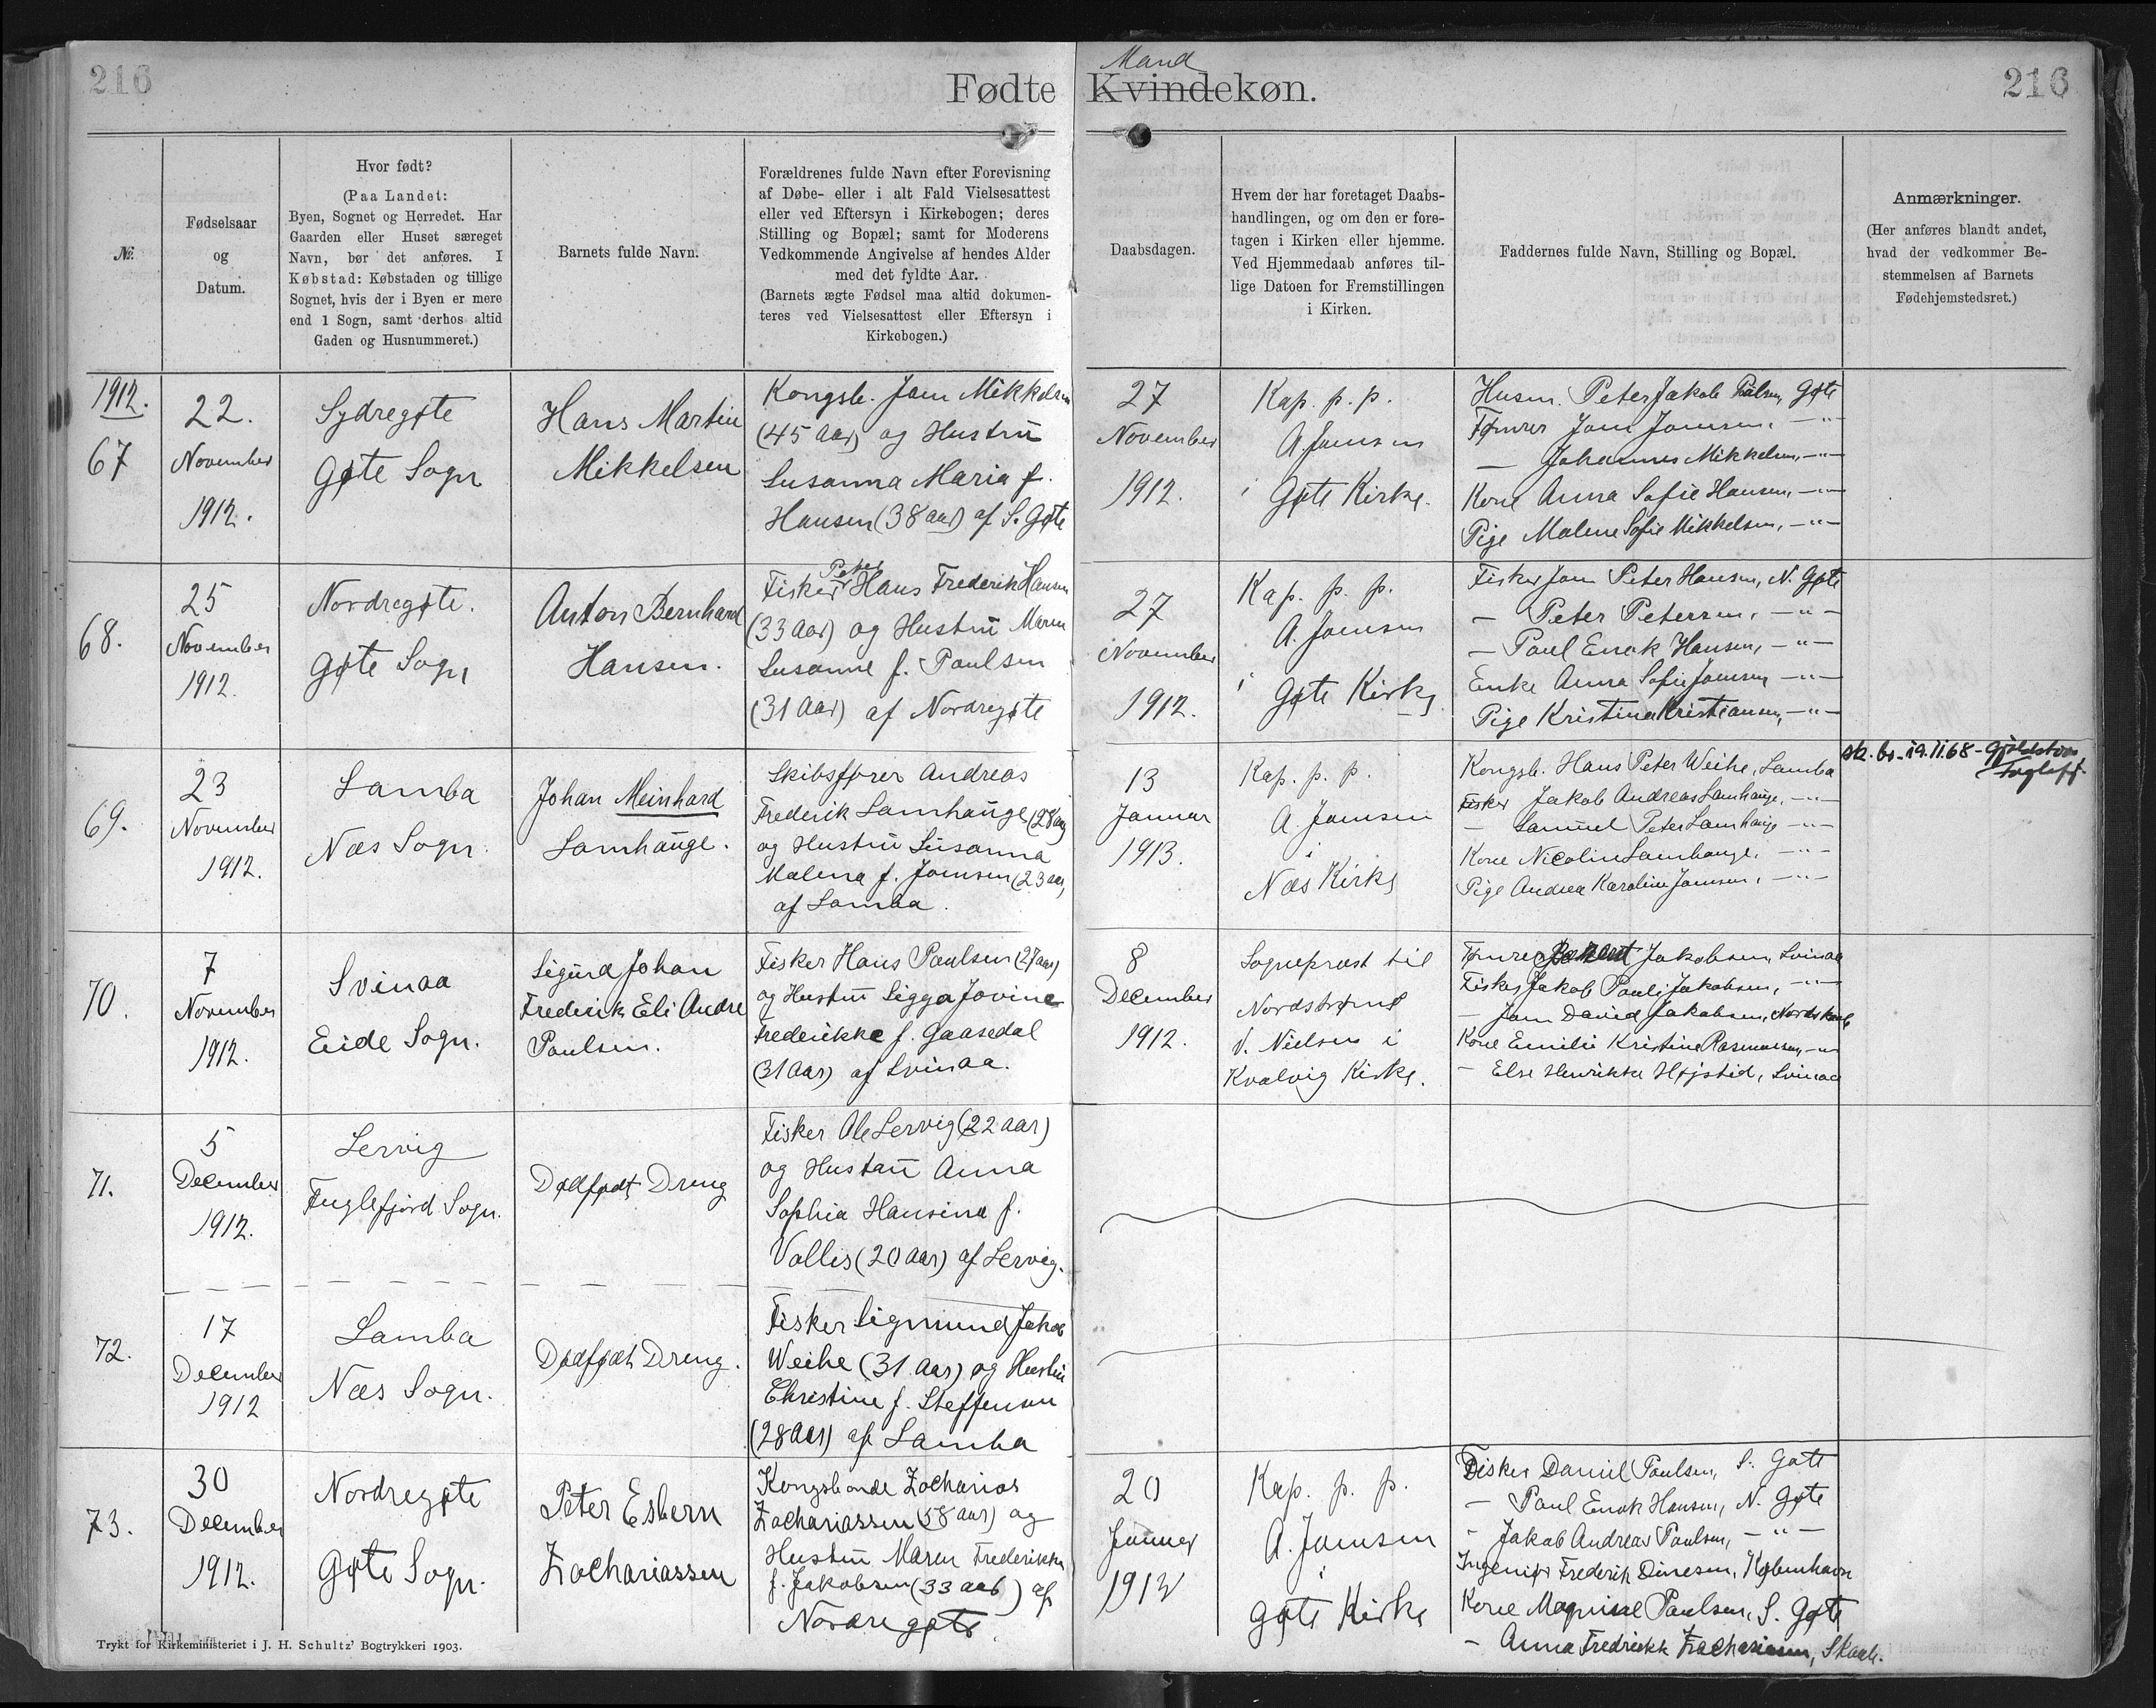 216
Fødte
Mand
Kvindekøn.
216
№.
Fødselsaar
og
Datum.
Hvor født?
(Paa Landet:
Byen, Sognet og Herredet. Har
Gaarden eller Huset særeget
Navn, bør det anføres. I
Købstad: Købstaden og tillige
Sognet, hvis der i Byen er mere
end 1 Sogn, samt derhos altid
Gaden og Husnummeret.)
Barnets fulde Navn.
Forældrenes fulde Navn efter Forevisning
af Døbe- eller i alt Fald Vielsesattest
eller ved Eftersyn i Kirkebogen; deres
Stilling og Bopæl; samt for Moderens
Vedkommende Angivelse af hendes Alder
med det fyldte Aar.
(Barnets ægte Fødsel maa altid dokumen-
teres ved Vielsesattest eller Eftersyn i
Kirkebogen.)
Daabsdagen.
Hvem der har foretaget Daabs-
handlingen, og om den er fore-
tagen i Kirken eller hjemme.
Ved Hjemmedaab anføres til-
lige Datoen for Fremstillingen
i Kirken.
Faddernes fulde Navn, Stilling og Bopæl.
Anmærkninger.
(Her anføres blandt andet,
hvad der vedkommer Be-
stemmelsen af Barnets
Fødehjemstedsret.)
1912.
67
22.
November
1912.
Sydregøte
Gøte Sogn
Hans Martin
Mikkelsen
Kongsb. Joen Mikkelsen
(45 Aar) og Hustrū
Susanna Maria f.
Hansen (38 aar) af S. Gøte
27
November
1912.
Kap. p. p.
A Joensen
i Gøte Kirke.
Husm. Peter Jakob Gøte
Tømrer Joen Joensen, —"—
— Johannes Mikkelsen, —"—
Kone Anna Sofie Hansen, —"—
Pige Malene Sofie Mikkelsen, —"—
68.
25
November
1912.
Nordregøte.
Gøte Sogn
Anton Bernhard
Hansen.
Peter
Fisker Hans Frederik Hansen
(33 Aar) og Hustrū Maren
Susanne f. Poulsen
(31 Aar) af Nordregøte
27
November
1912.
Kap. p. p.
A. Joensen
i Gøte Kirke
Fisker Joen Peter Hansen, N. Gøte
— Peter Petersen, —"—
— Poul Enok Hansen, —"—
Enke Anna Sofie Joensen —"—
Pige Kristina Kristiansen, —"—
69.
23
November
1912.
Lamba
Næs Sogn.
Johan Meinhard
Lamhaūge.
Skibsfører Andreas
Frederik Lamhaūge (28 aar)
og Hustrū Sūsanna
Malena f. Joensen (23 aar)
af Lamba.
13
Januar
1913.
Kap. p. p.
A. Joensen
i
Næs Kirke
Kongsb. Hans Peter Weihe, Lamba
Fisker Jakob Andreas Lamhauge, —"—
— Samūel Peter Lamhauge —"—
Kone Nicoline Lamhauge, —"—
Pige Andrea Karoline Joensen, —"—
sk. br. 19.11.68 -
70.
7
November
1912.
Svinaa
Eide Sogn.
Sigūrd Johan
Frederik Eli Andre
Poulsen.
Fisker Hans Poulsen (27 aar)
og Hustrū Sigga Jovine
Frederikke f. Gaasedal
(31 Aar) af Svinaa.
8
December
1912.
Sognepræst til
Nordstrømø
V. Nielsen i
Kvalvig Kirke.
Tømrer Jakobsen, Svinaa
Fisker Jakob Pauli Jakobsen, —"—
— Joen David Jakobsen,
Kone Emilie Kristine Rasmussen, —"—
— Else Henrikke Højsted, Svinaa
71.
5
December
1912.
Lervig
Fuglefjord Sogn.
Dødfødt Dreng
Fisker Ole Lervig (22 aar)
og Hustrū Anna
Sophia Hansina f.
Vallis (20 aar) af Lervig.
72.
17
December
1912
Lamba
Næs Sogn.
Dødfødt Dreng.
Fisker Sigmund Jakob
Weihe (31 Aar) og Hustrū
Christine f. Steffensen
(28 Aar) af Lamba
73.
30
December
1912.
Nordregøte
Gøte Sogn.
Peter Esbern
Zachariassen
Kongsbonde Zacharias
Zachariassen (58 aar) og
Hustrū Maren Frederikke
f. Jakobsen (33 aar) af
Nordregøte.
20
Januar
1913
Kap. p. p.
A. Joensen
i
Gøte Kirke
Fisker Daniel Poulsen, S. Gøte
— Poul Enok Hansen, N. Gøte
— Jakob Andreas Poulsen, —"—
Ingeniør Frederik Dinesen, København
Kone Poulsen, S. Gøte
— Anna Fredrikke Zachariasen, Skaale.
Trykt for Kirkeministeriet i J. H. Schultz' Bogtrykkeri 1903.